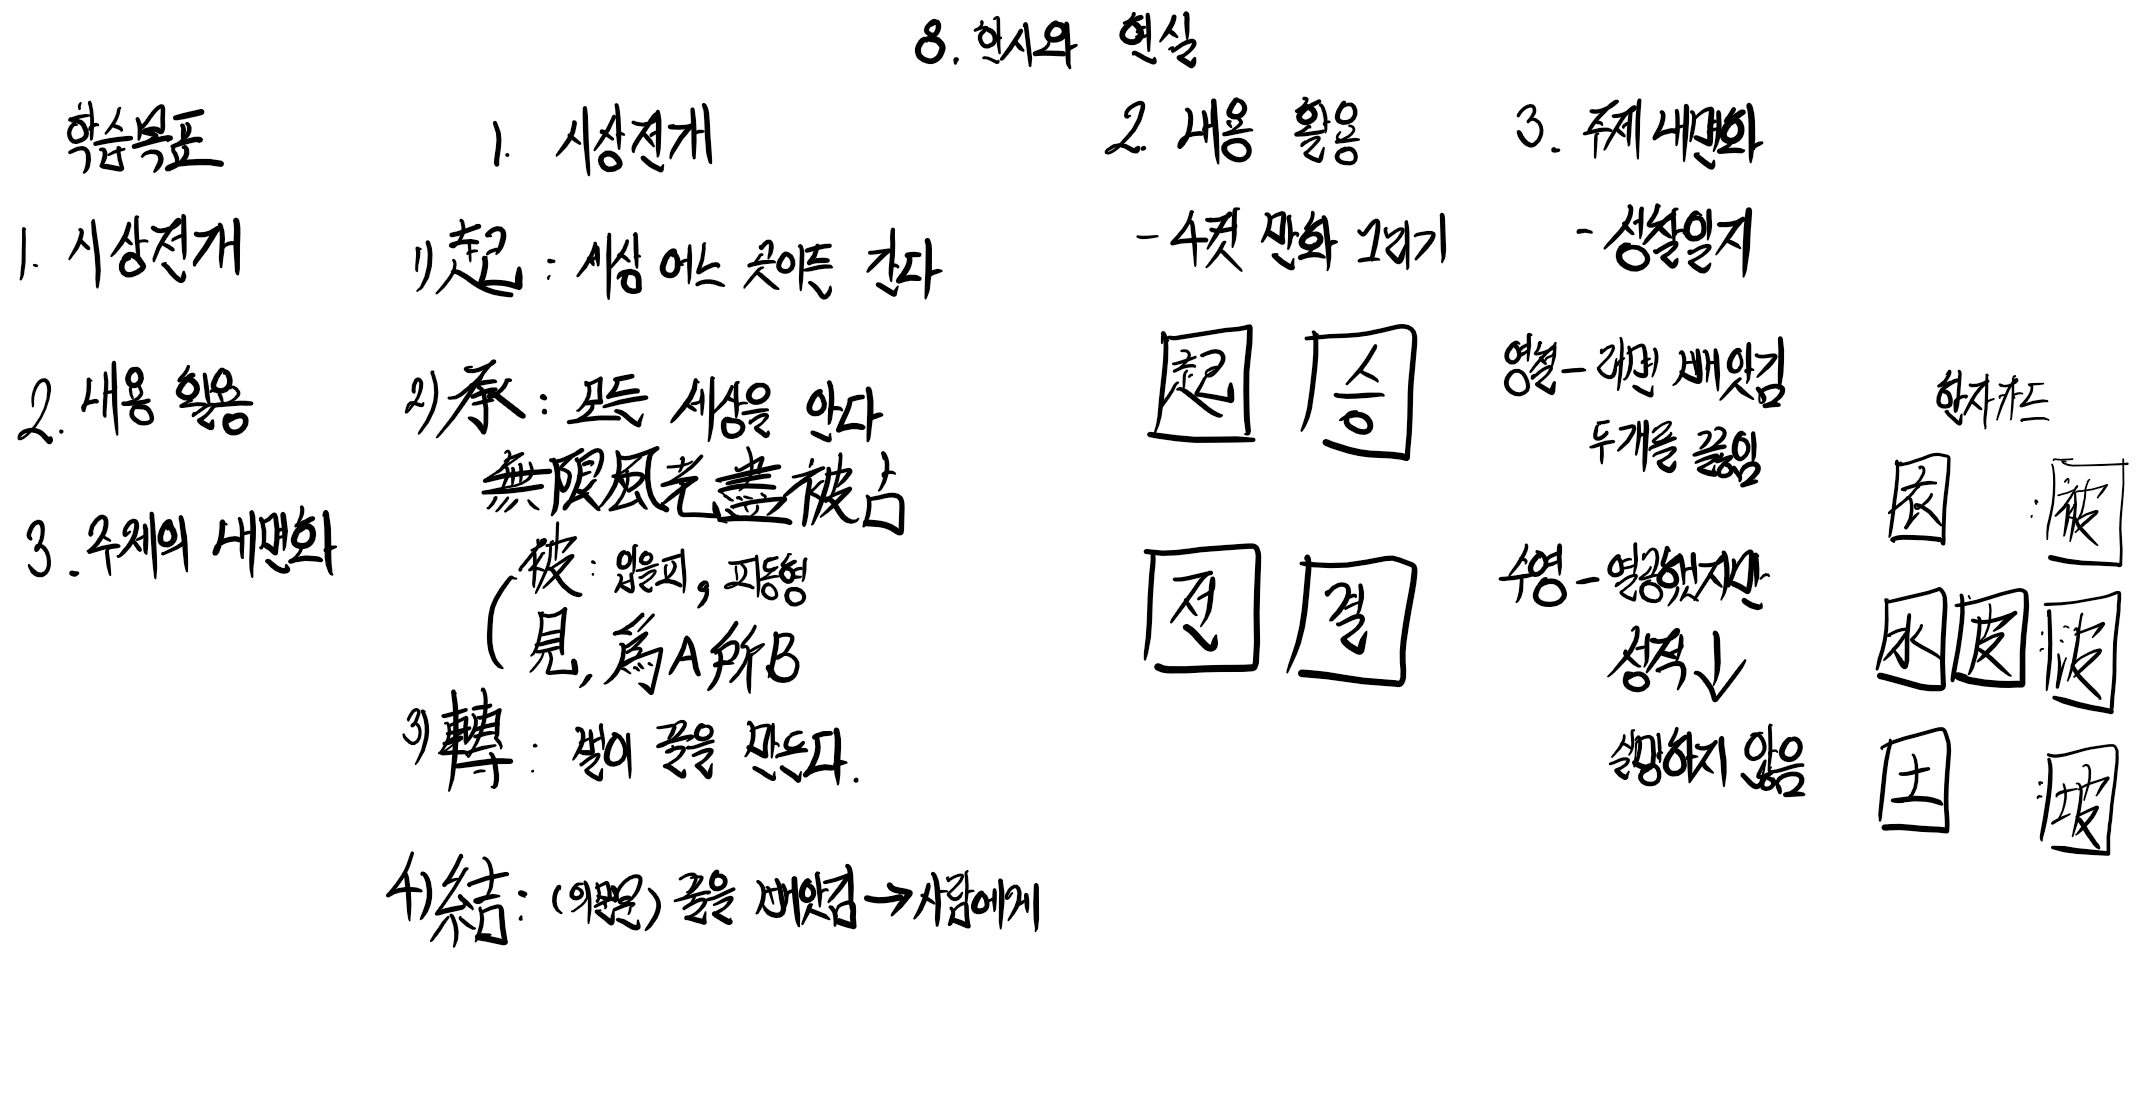 8. 한시와 현실
학습목표
1. 시상전개
2. 내용 활용
3. 주제의 내면화
1. 시상전개
1) 起 : 세상 어느 곳이든 간다
2) 承 : 모든 세상을 안다
無限風光盡被占
被 : 입을피, 피동형
見, 爲A所B
3) 轉 : 벌이 꿀을 만든다.
4) 結 : (의문문) 꿀을 빼앗김 → 사람에게
2. 내용 활용
- 4컷 만화 그리기
起 승
전 결
3. 주제 내면화
- 성찰일지
영철 - 라면 빼앗김
두개를 끓임
수영 - 열공했지만
성적↓
실망하지 않음
한자카드
衣 : 被
水 皮 : 波
土 : 坡